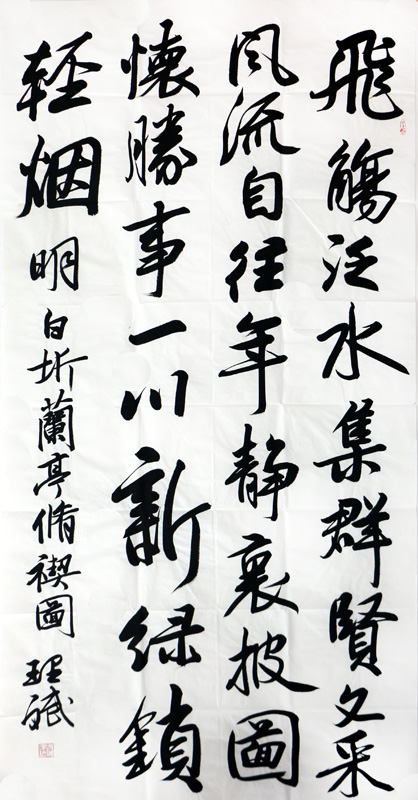 飛觴泛水集群賢文采
風流自往年静裏披圖
懷勝事一川新緑鎖
輕烟 明白圻蘭亭脩禊圖